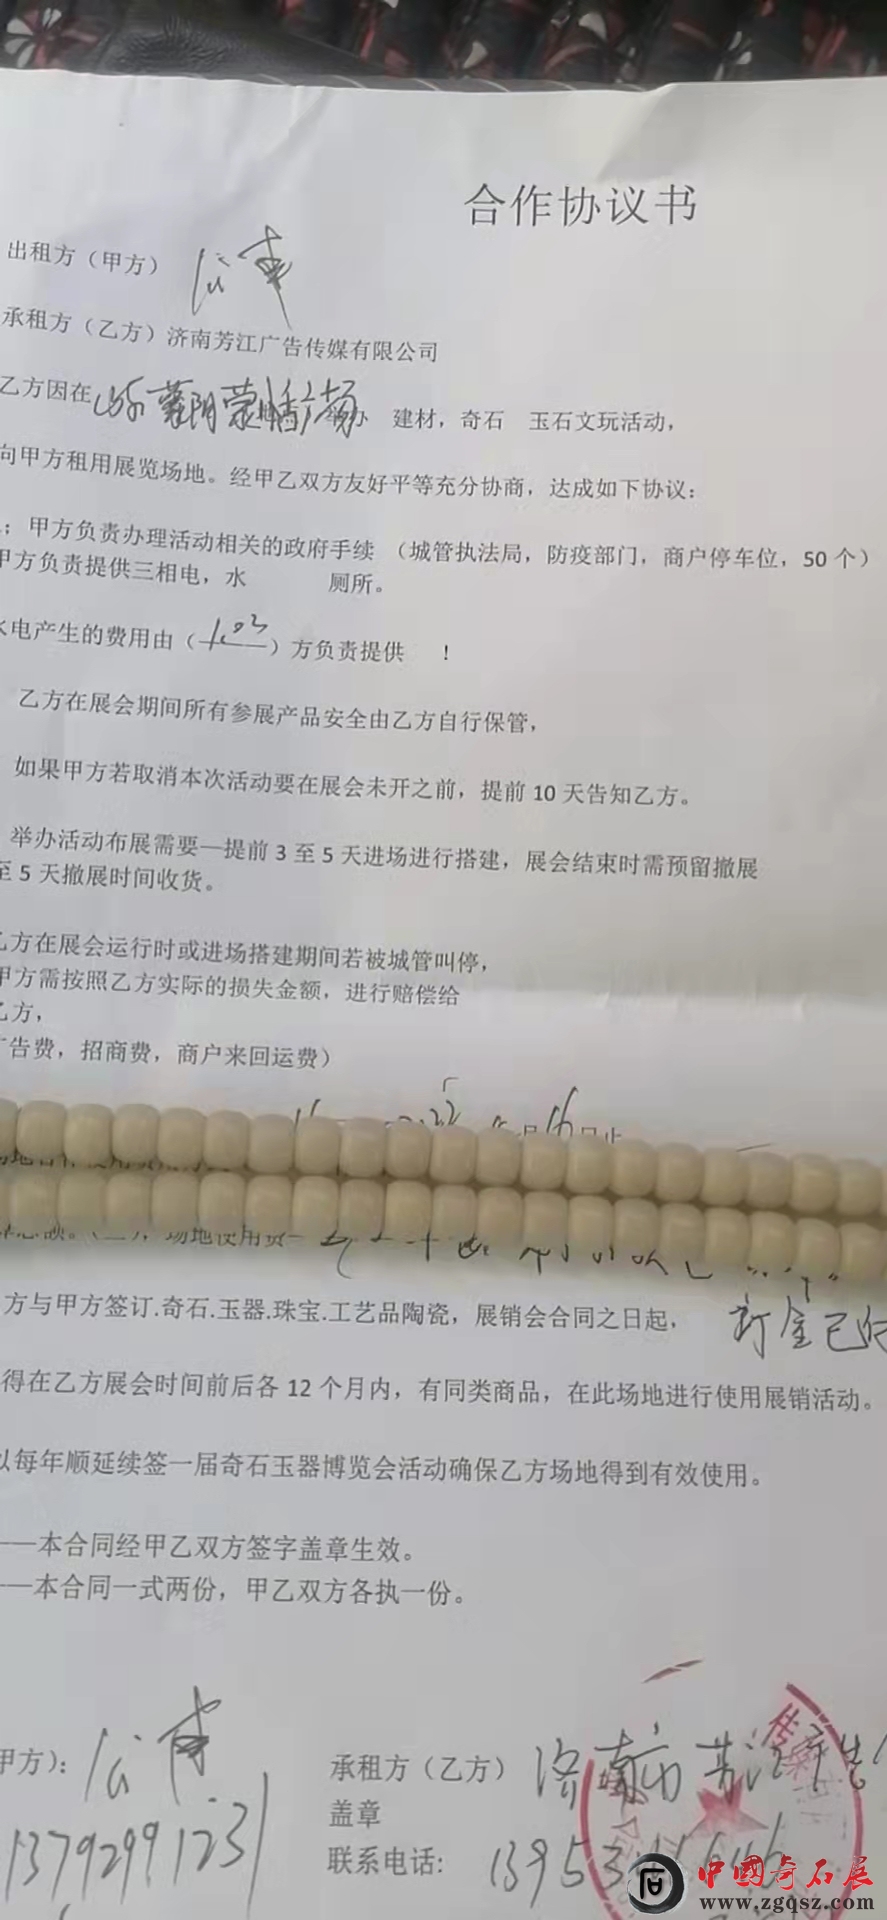 合作协议书
出租方（甲方）
承租方（乙方）济南芳江广告传媒有限公司
乙方因在 山东蒙阴蒙恬广场 举办 建材，奇石 玉石文玩活动，
向甲方租用展览场地。经甲乙双方友好平等充分协商，达成如下协议：
；甲方负责办理活动相关的政府手续（城管执法局，防疫部门，商户停车位，50个）
甲方负责提供三相电，水 厕所。
水电产生的费用由（ ）方负责提供 ！
乙方在展会期间所有参展产品安全由乙方自行保管，
如果甲方若取消本次活动要在展会未开之前，提前10天告知乙方。
举办活动布展需要—提前3至5天进场进行搭建，展会结束时需预留撤展
至5天撤展时间收货。
乙方在展会运行时或进场搭建期间若被城管叫停，
甲方需按照乙方实际的损失金额，进行赔偿给
乙方，
广告费，招商费，商户来回运费）
16日止
场地使用费
方与甲方签订.奇石.玉器.珠宝.工艺品陶瓷，展销会合同之日起， 订金已付
得在乙方展会时间前后各12个月内，有同类商品，在此场地进行使用展销活动。
以每年顺延续签一届奇石玉器博览会活动确保乙方场地得到有效使用。
——本合同经甲乙双方签字盖章生效。
——本合同一式两份，甲乙双方各执一份。
甲方）：
13792991231
承租方（乙方） 济南方芳江广告
盖章
联系电话: 13953
传媒
中國奇石展
www.zgqsz.com